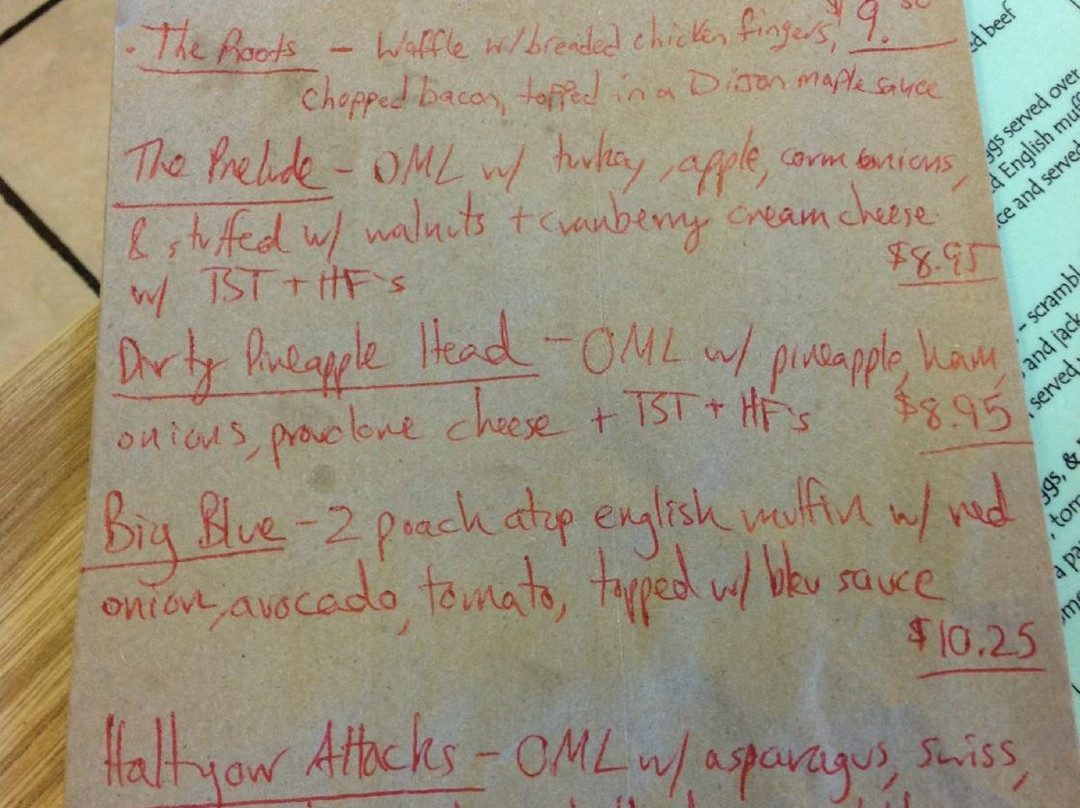 · The Roots - Waffle w/ breaded chicken fingers, $9.50
chopped bacon, topped in a Dijon maple sauce
The Prelude - OML w/ turkey, apple, carm onions,
& stuffed w/ walnuts + cranberry cream cheese
w/ TST + HF's $8.95
Dirty Pineapple Head - OML w/ pineapple, ham,
onions, provolone cheese + TST + HF's $8.95
Big Blue - 2 poach atop english muffin w/ red
onion, avocado, tomato, topped w/ bleu sauce
$10.25
Halt your Attacks - OML w/ asparagus, swiss,
ed beef
ggs served over
d English muff
ce and served
- scrambl
, and jack
served
ggs, &
, tom
a pa